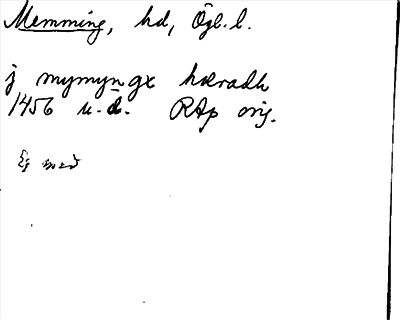 Memming, hd, Ögl. l.
j mymyngx hæradh
1456 u. d. RAp orig.
Ej med